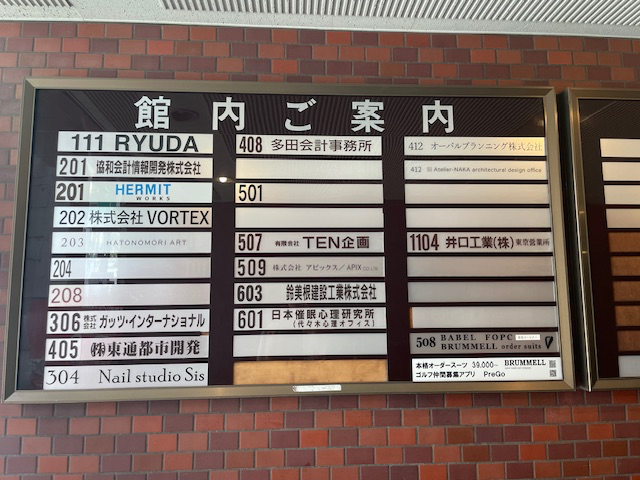 館内ご案内
111 RYUDA
201 協和会計情報開発株式会社
201 HERMIT
WORKS
202 株式会社 VORTEX
203 HATONOMORI ART
204
208
306 株式会社 ガッツ・インターナショナル
405 ㈱東通都市開発
304 Nail studio Sis
408 多田会計事務所
501
507 有限会社 TEN企画
509 株式会社 アピックス/APIX CO.,LTD.
603 鈴美根建設工業株式会社
601 日本催眠心理研究所
(代々木心理オフィス)
412 オーパルプランニング株式会社
412 Atelier-NAKA architectural design office
1104 井口工業(株) 東京営業所
508 BABEL FOPC
BRUMMELL order suits
本格オーダースーツ 39,000~ BRUMMELL
ゴルフ仲間募集アプリ PreGo